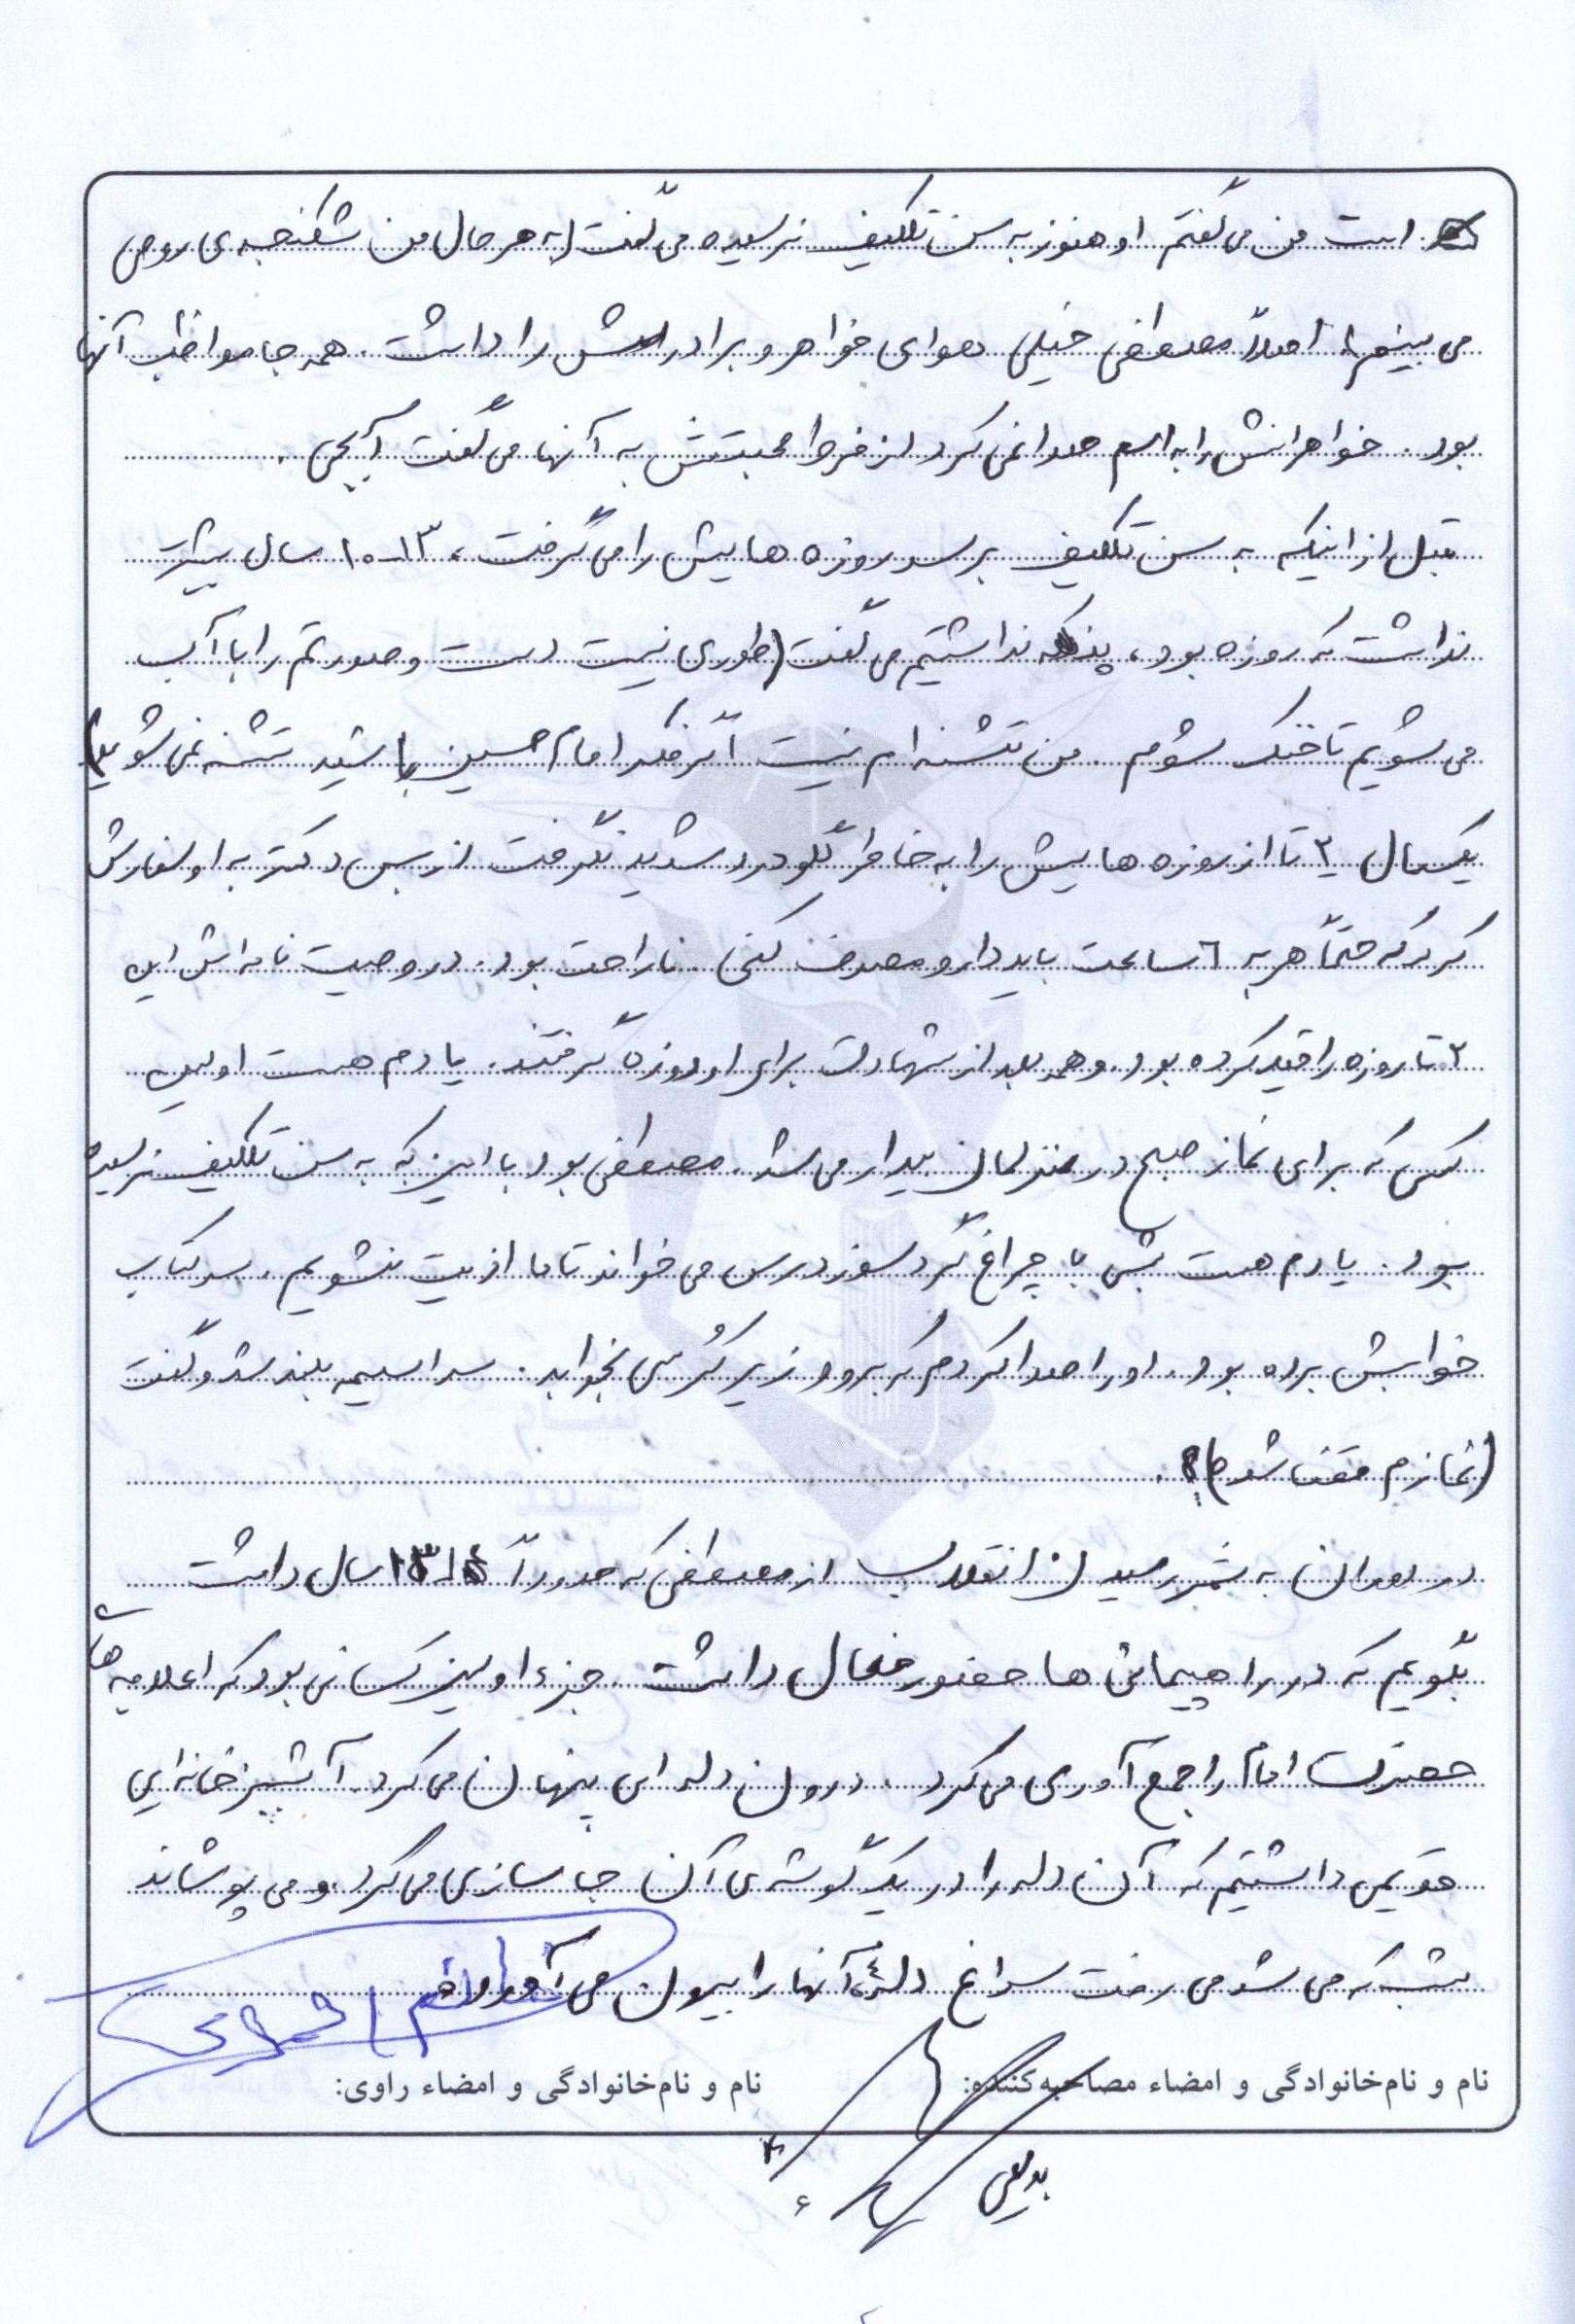 است من می گفتم او هنوز به سن تکلیف نرسیده می گفت (به هر حال من شکنجه ی روحی
می بینم). اصلاً مصطفی خیلی هوای خواهر و برادرش را داشت. همه جا مواظب آنها
بود. خواهرانش را به اسم صدا نمی کرد از فرط محبتش به آنها می گفت آبجی.
قبل از اینکه به سن تکلیف برسد روزه هایش را می گرفت، ۱۳-۱۰ سال بیشتر
نداشت که روزه بود، پنکه نداشتیم می گفت (طوری نیست دست و صورتم را با آب
می شویم تا خنک شوم. من تشنه ام نیست اگر فکر امام حسین باشید تشنه نمی شوید)
یکسال ۳ تا از روزه هایش را به خاطر گلو درد شدید نگرفت از بس دکتر به او سفارش
کرد که حتماً هر به ۶ ساعت باید دارو مصرف کنی. ناراحت بود. در وصیت نامه اش این
۳ تا روزه را قید کرده بود. و همه بعد از شهادت برای او روزه گرفتند. یادم هست اولین
کسی که برای نماز صبح در منزلمان بیدار می شد. مصطفی بود با این که به سن تکلیف نرسیده
بود. یادم هست شبی با چراغ گرد سوز درس می خواند تا ما اذیت نشویم. سر کتاب
خوابش برده بود. او را صدا کردم که برود زیر کُرسی بخوابد. سراسیمه بلند شد و گفت
(نمازم قضا شد؟).
در دوران به ثمر رسیدن انقلاب از مصطفی که حدوداً ۱۴-۱۳ سال داشت
بگویم که در راهپیمائی ها حضور فعال داشت. جزء اولین کسانی بود که اعلامیه های
حضرت امام را جمع آوری می کرد. درون دله ای پنهان می کرد. آشپزخانه ایی
قدیمی داشتیم که آن دله را در یک گوشه ی آن جا سازی می کرد و می پوشاند
شب که می شد می رفت سراغ دله، آنها را بیرون می آورد و
نام و نام‌خانوادگی و امضاء مصاحبه‌کننده: نام و نام‌خانوادگی و امضاء راوی:
بدیعی